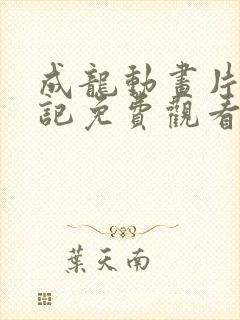 成龍動畫片
記免費觀看
葉天南